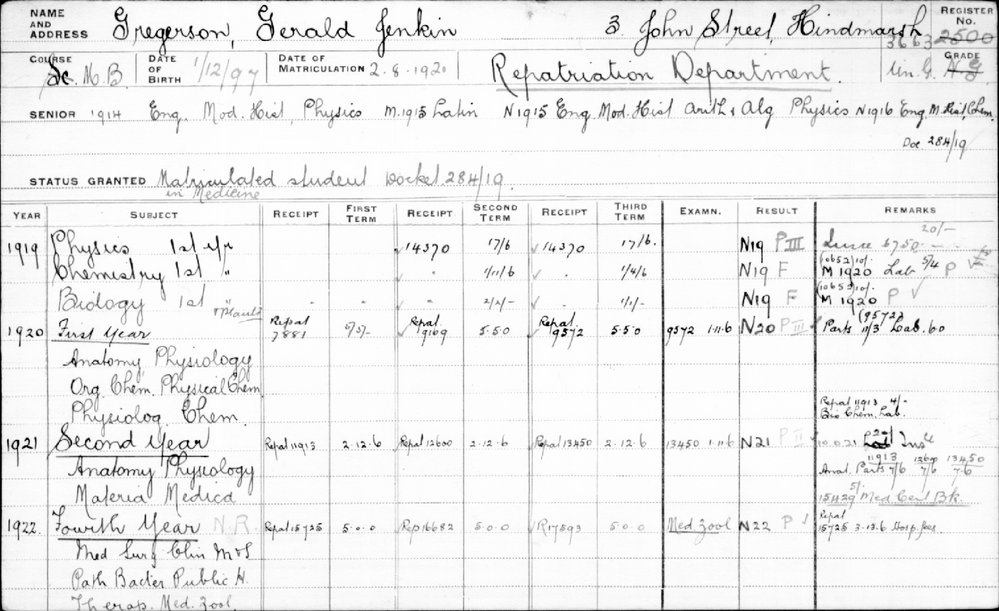 NAME AND ADDRESS Gregerson, Gerald Jenkin 3 John Street, Hindmarsh REGISTER No. 3663 2500
COURSE Sc. M.B DATE OF BIRTH 1/12/97 DATE OF MATRICULATION 2.8.1921 Repatriation Department. GRADE Un. G.
SENIOR 1914 Eng. Mod. Hist, Physics M.1915 Latin N1915 Eng. Mod. Hist Arith & Alg Physics N1916 Eng M. Hist, Chem.
Doc 284/19
STATUS GRANTED Matriculated student Docket 284/19.
in Medicine
YEAR SUBJECT RECEIPT FIRST TERM RECEIPT SECOND TERM RECEIPT THIRD TERM EXAMN. RESULT REMARKS
20/-
1919 Physics 1st yr 14370 17/6 14370 17/6. N19 P III
Chemistry 1st " " 1/11/6 " 1/4/6 N19 F (10652) 10/. M 1920 Lab 5/4 P
Biology 1st " - - " 2/2/- - 1/1/- N19 F (10653) 10/. M 1920 P
1920 First Year Repat 7881 Repat 9169 5.5.0 Repat 9572 5.5.0 9572 1.11.6 N20 P III (9572) Parts 11/3 Lab. 60
Anatomy, Physiology
Org. Chem. Physical Chem
Physiolog. Chem. Repat 11913 4/- Bio Chem. Lab.
1921 Second Year Repat 11913 2.12.6 Repat 12600 2.12.6 Repat 13450 2.12.6 13450 1.11.6 N21 P II 10.0.21
Anatomy Physiology Anat. Parts 11913 7/6 12600 7/6 13450 7.6
Materia Medica 5/. 15429 Med Cert Bk.
1922 Fourth Year N.R. Repat 15725 5.0.0 Rep 16682 5.0.0 R17593 5.0.0 Med Zool N22 P Repat 15725 3.13.6 Hosp. fees
Med Surg Clin M & S
Path Bacter Public H.
Therap. Med. Zool.